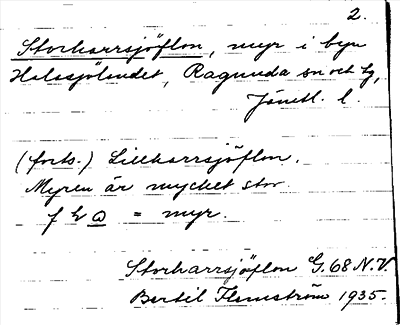 2.
Storharrsjöflon, myr i byn
Halasjölandet, Ragunda sn och tg,
Jämtl. l.
(forts.) Lillharrsjöflon.
Myren är mycket stor.
= myr.
Storharrsjöflon G.68 N.V.
Bertil Flemström 1935.